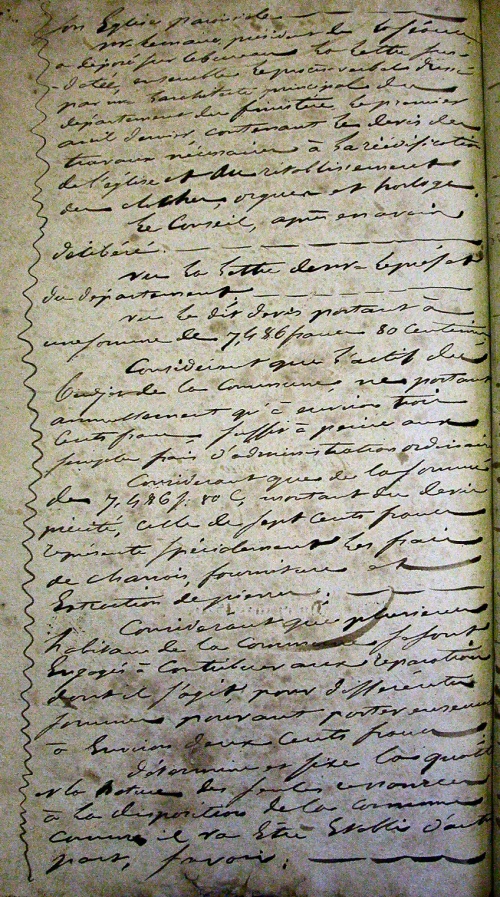 son Eglise paroissiale
Mr le maire, président de la séance
a déposé sur le bureau la lettre sus
datée, ensemble le procès verbal dressé
par un architecte principal du
département du finistère, le premier
avril dernier contenant le devis des
travaux nécessaires à la réédification
de l'église et du rétablissement
du clocher, orgues et horloge.
Le Conseil, après en avoir
délibéré.
vu la lettre de mr le préfet
du département
vu le dit devis portant à
une somme de 7,486 francs 80 Centimes
Considérant que l'actif du
budget de la Commune, ne portant
annuellement qu'à environ trois
Cents francs, suffit à peine aux
simples frais d'administration ordinaire
Considérant que de la somme
de 7,486 f. 80 C, montant du devis
précité, celle de sept Cents francs
représente spécialement les frais
de charrois, fourniture et
Extraction de pierres.
Considérant que plusieurs
habitans de la Commune se sont
Engagés à Contribuer aux réparations
dont il s'agit, pour différentes
sommes pouvant porter ensemble
à Environ deux Cents francs
détermine et fixe la quotité
et la Nature des seules ressources
à la disposition de la Commune
comme il va Etre Etabli d'autre
part, savoir: